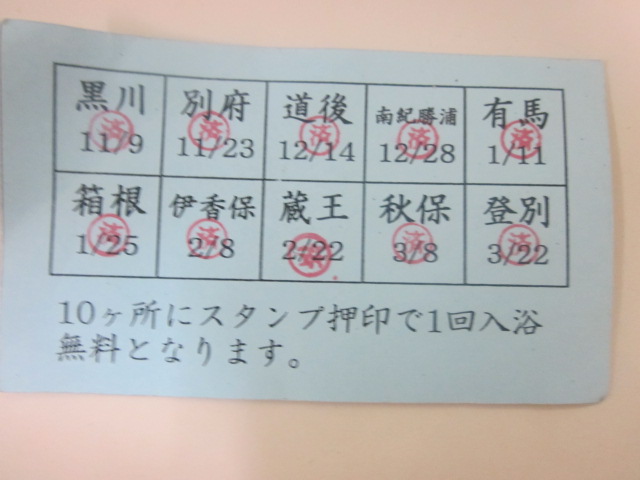 黒川 別府 道後 南紀勝浦 有馬
済 済 済 済 済
11/9 11/23 12/14 12/28 1/11
箱根 伊香保 蔵王 秋保 登別
済 済 済 済
1/25 2/8 2/22 3/8 3/22
10ヶ所にスタンプ押印で1回入浴
無料となります。